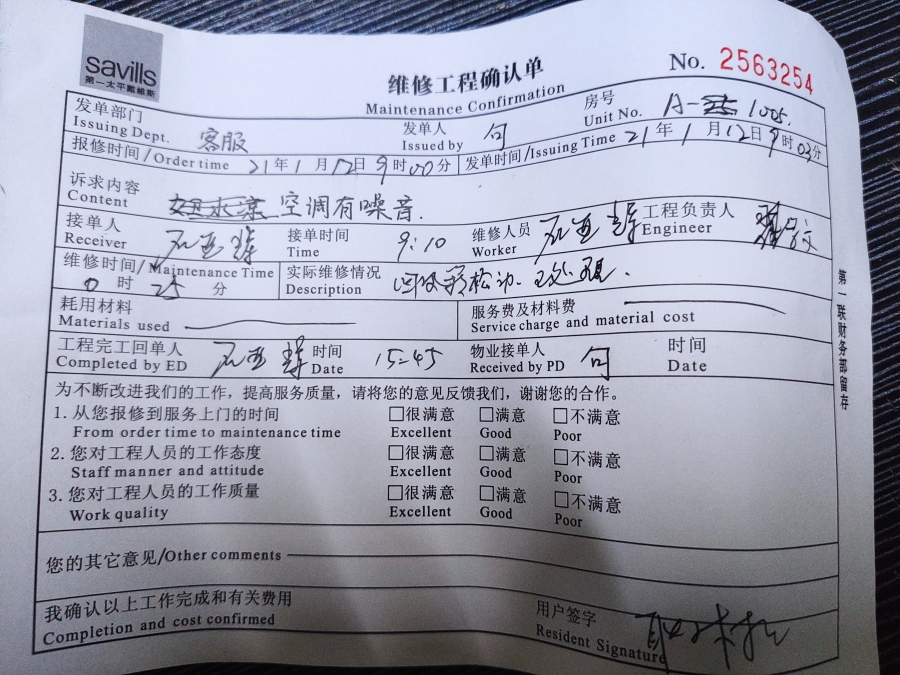 savills
第一太平戴维斯
维修工程确认单
Maintenance Confirmation
No. 2563254
发单部门 客服
Issuing Dept.
发单人 句
Issued by
房号 A- 1005.
Unit No.
报修时间/Order time 21年1月12日9时00分
发单时间/Issuing Time 21年1月12日9时03分
诉求内容 空调有噪音.
Content
接单人
Receiver
接单时间 9:10
Time
维修人员
Worker
工程负责人
Engineer
维修时间/Maintenance Time
0时25分
实际维修情况
Description
耗用材料
Materials used
服务费及材料费
Service charge and material cost
工程完工回单人
Completed by ED
时间 15:45
Date
物业接单人 句
Received by PD
时间
Date
为不断改进我们的工作，提高服务质量，请将您的意见反馈我们，谢谢您的合作。
1. 从您报修到服务上门的时间 □很满意 □满意 □不满意
From order time to maintenance time Excellent Good Poor
2. 您对工程人员的工作态度 □很满意 □满意 □不满意
Staff manner and attitude Excellent Good Poor
3. 您对工程人员的工作质量 □很满意 □满意 □不满意
Work quality Excellent Good Poor
您的其它意见/Other comments
我确认以上工作完成和有关费用
Completion and cost confirmed
用户签字
Resident Signature
第一联财务部留存